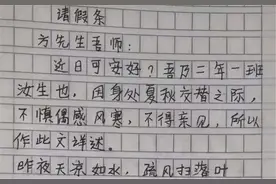 请假条
方先生吾师:
近日可安好?吾乃二年一班
汝生也,因身处夏秋交替之际,
不慎偶感风寒,不得亲见,所以
作此文详述。
昨夜天凉如水,疏风扫落叶